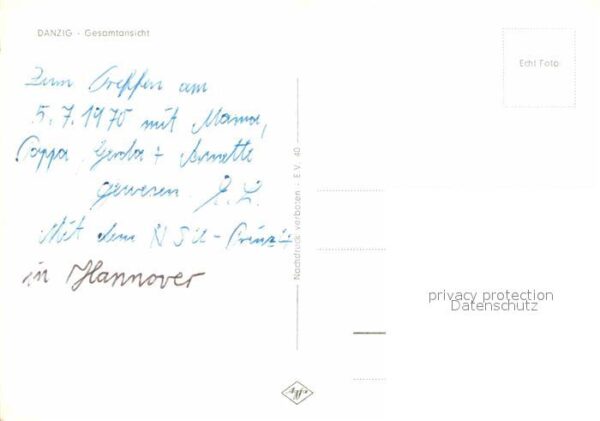 DANZIG - Gesamtansicht
Echt Foto
Zum Treffen am
5.7.1970 mit Mama,
Pappa, Gerda + Annette
gewesen.
Mit dem NSU-Prinz
in Hannover
Nachdruck verboten - E.V. 40
privacy protection
Datenschutz
Agfa